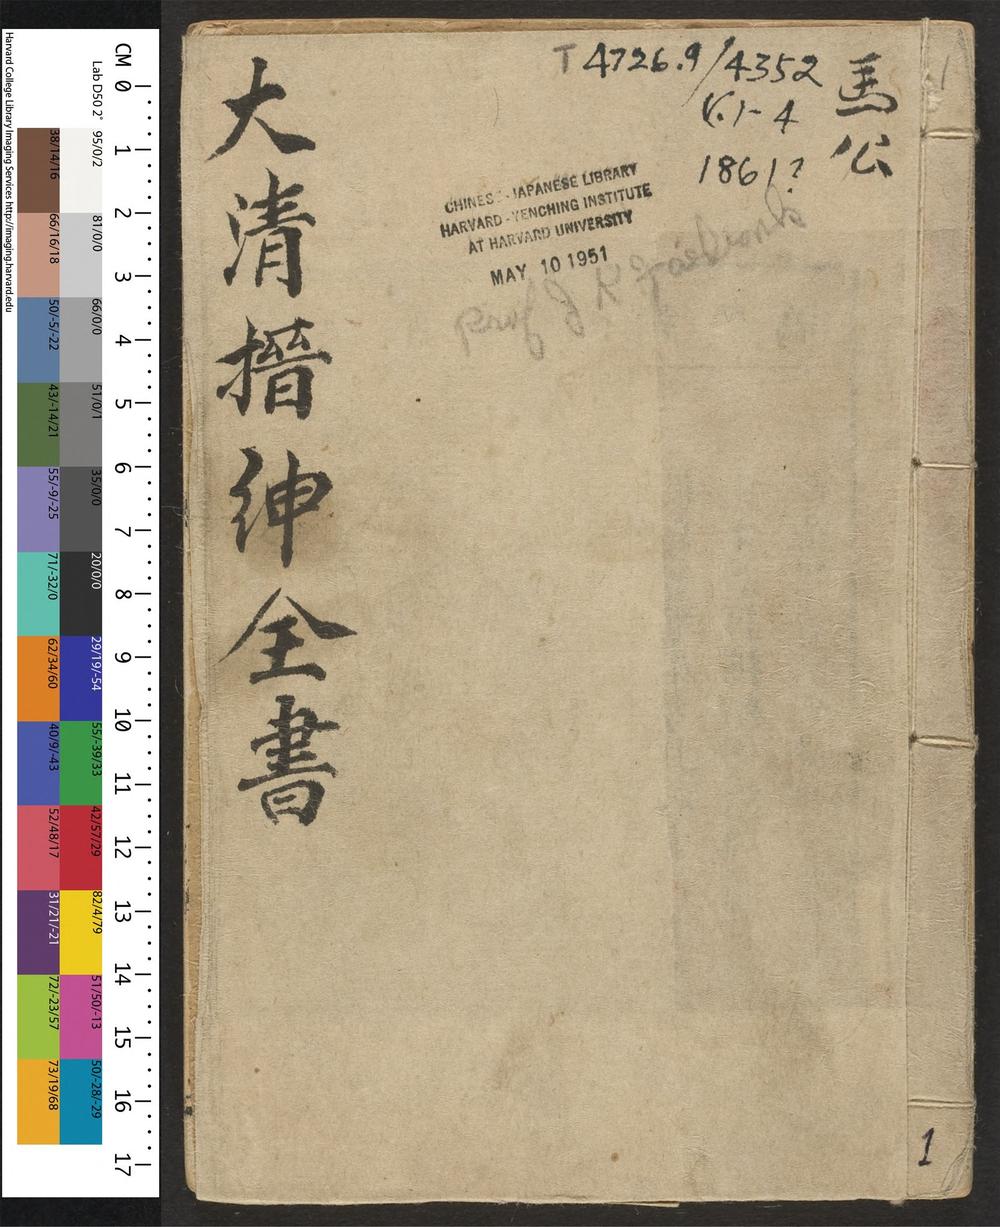 馬公
T 4726.9/4352
V.1-4
1861?
CHINESE-JAPANESE LIBRARY
HARVARD-YENCHING INSTITUTE
AT HARVARD UNIVERSITY
MAY 10 1951
Prof J K
大清搢紳全書
1
1
CM 0 1 2 3 4 5 6 7 8 9 10 11 12 13 14 15 16 17
Lab D50 2°
95/0/2
81/0/0
66/0/0
51/0/1
35/0/0
20/0/0
29/19/-54
55/-39/33
42/57/29
82/4/79
51/50/-13
50/-28/-29
38/14/16
66/16/18
50/-5/-22
43/-14/21
55/-9/-25
71/-32/0
62/34/60
40/9/-43
52/48/17
31/21/-21
72/-23/57
73/19/68
Harvard College Library Imaging Services http://imaging.harvard.edu